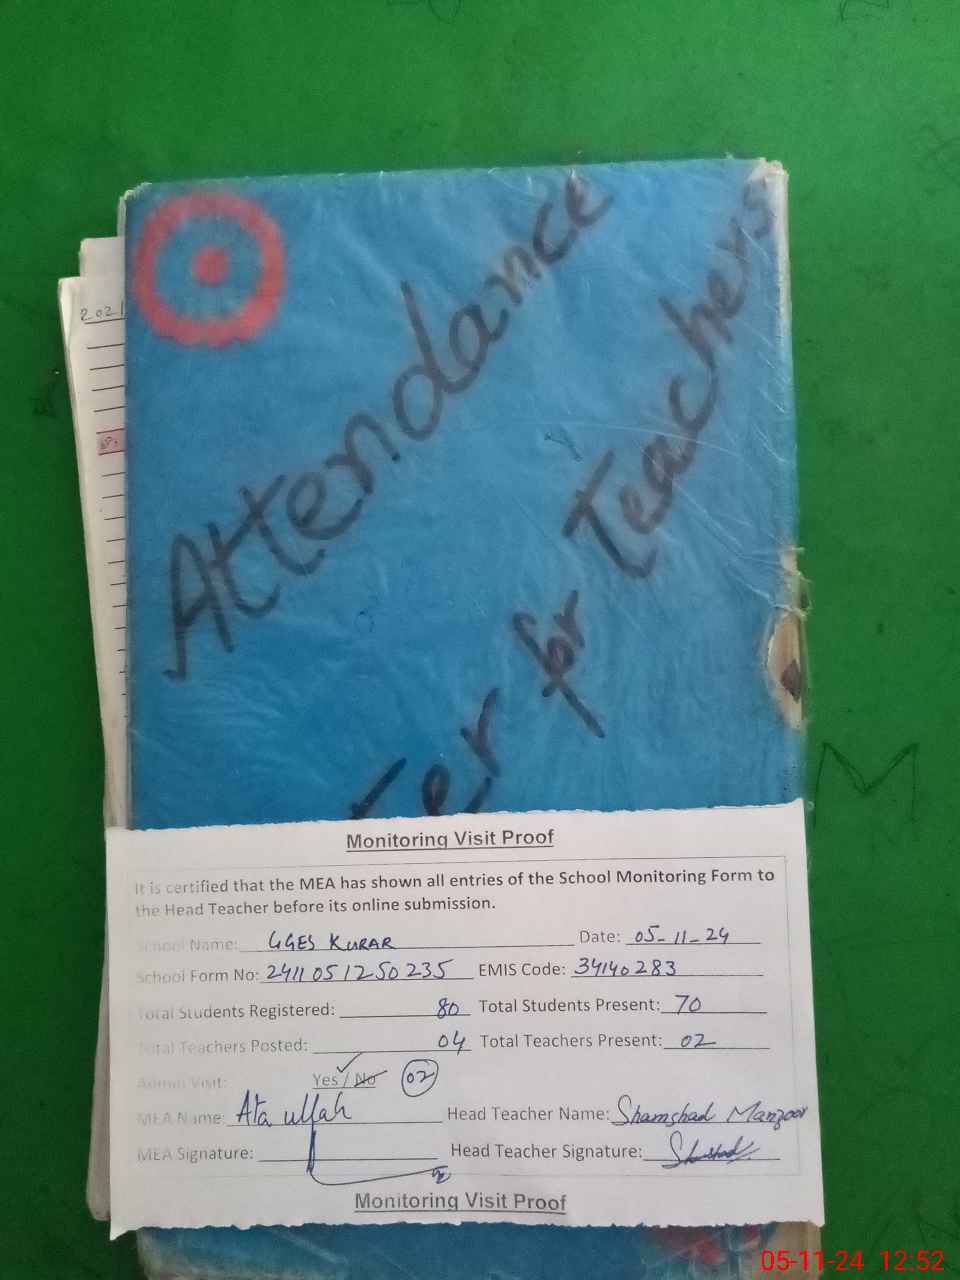 2021
Attendance
ter for Teachers
M
Monitoring Visit Proof
It is certified that the MEA has shown all entries of the School Monitoring Form to
the Head Teacher before its online submission.
School Name: GGES KURAR Date: 05-11-24
School Form No: 2411051250235 EMIS Code: 34140283
Total Students Registered: 80 Total Students Present: 70
Total Teachers Posted: 04 Total Teachers Present: 02
Admin Visit: Yes / No 02
MEA Name: Ata ullah Head Teacher Name: Shamshad Manzoor
MEA Signature: Head Teacher Signature:
Monitoring Visit Proof
05-11-24 12:52